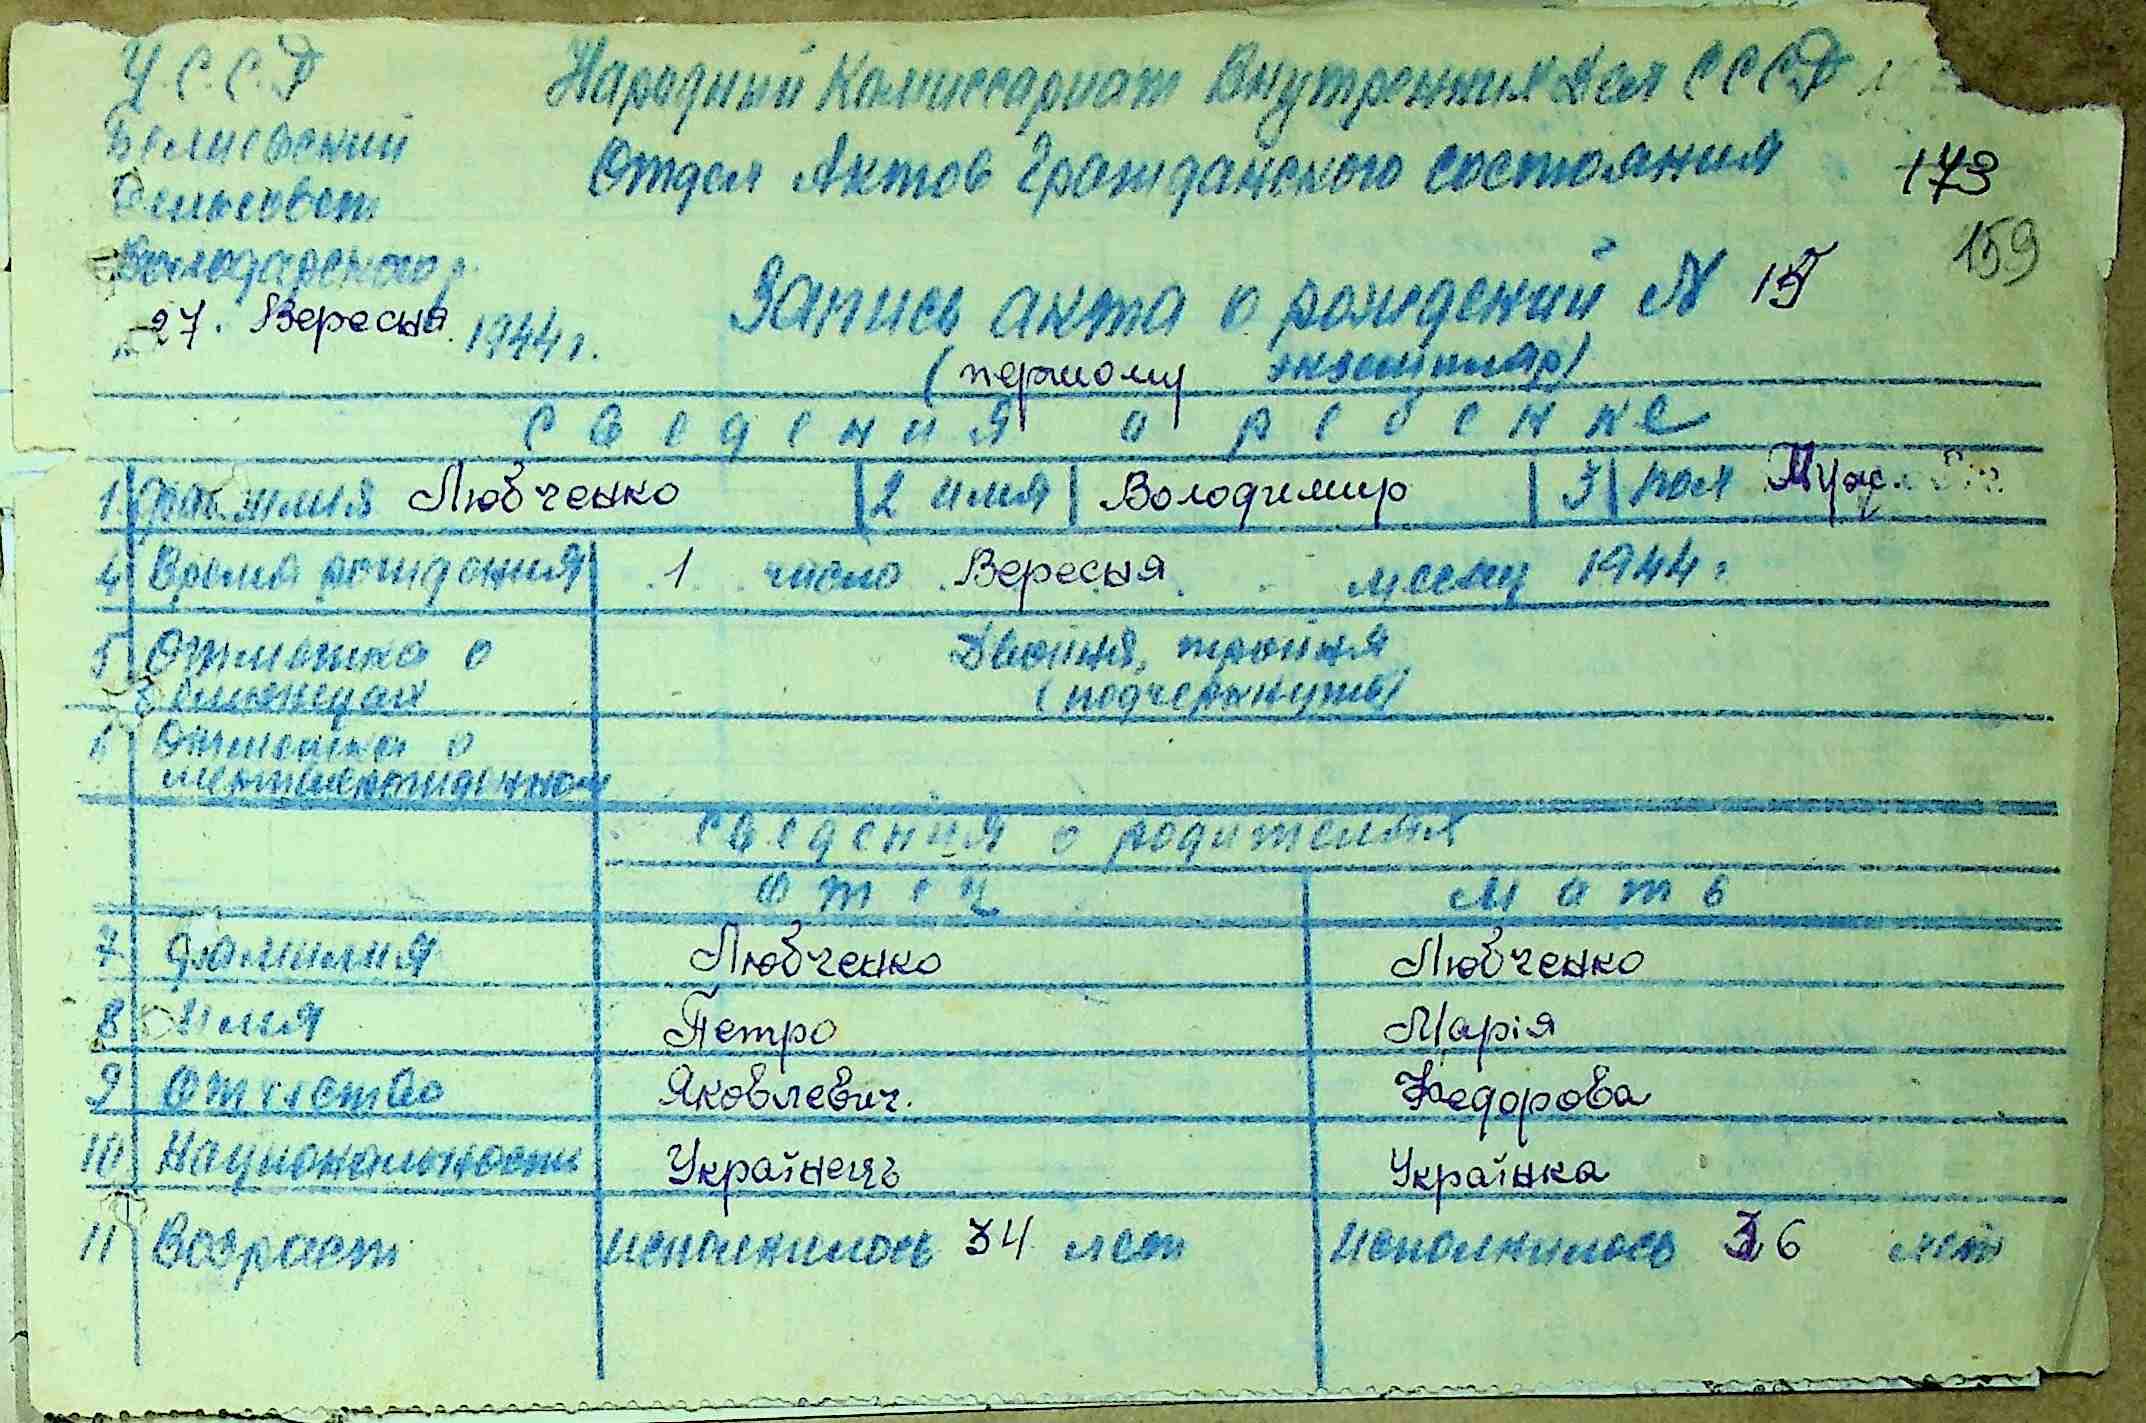 У.С.С.Р
Народний Комиссариат Внутренних Дел СССР
Отдел Актов Гражданского состояния
173
сельсовет
Володарского р.
159
27. Вересня 1944 г.
Запись акта о рождении № 15
(першому экземпляр)
Сведения о ребенке
1 Фамилия Любченко 2 имя Володимир 3 пол Муж.
4 Время рождения 1 число Вересня месяц 1944 г.
5 Отметка о Двойня, тройня
близнецах (подчеркнуть)
6 Отметка о
мертворожденном
Сведения о родителях
Отец Мать
7 Фамилия Любченко Любченко
8 Имя Петро Марія
9 Отчество Яковлевич. Федорова
10 Национальность Українець Українка
11 Возраст исполнилось 34 лет исполнилось 36 лет